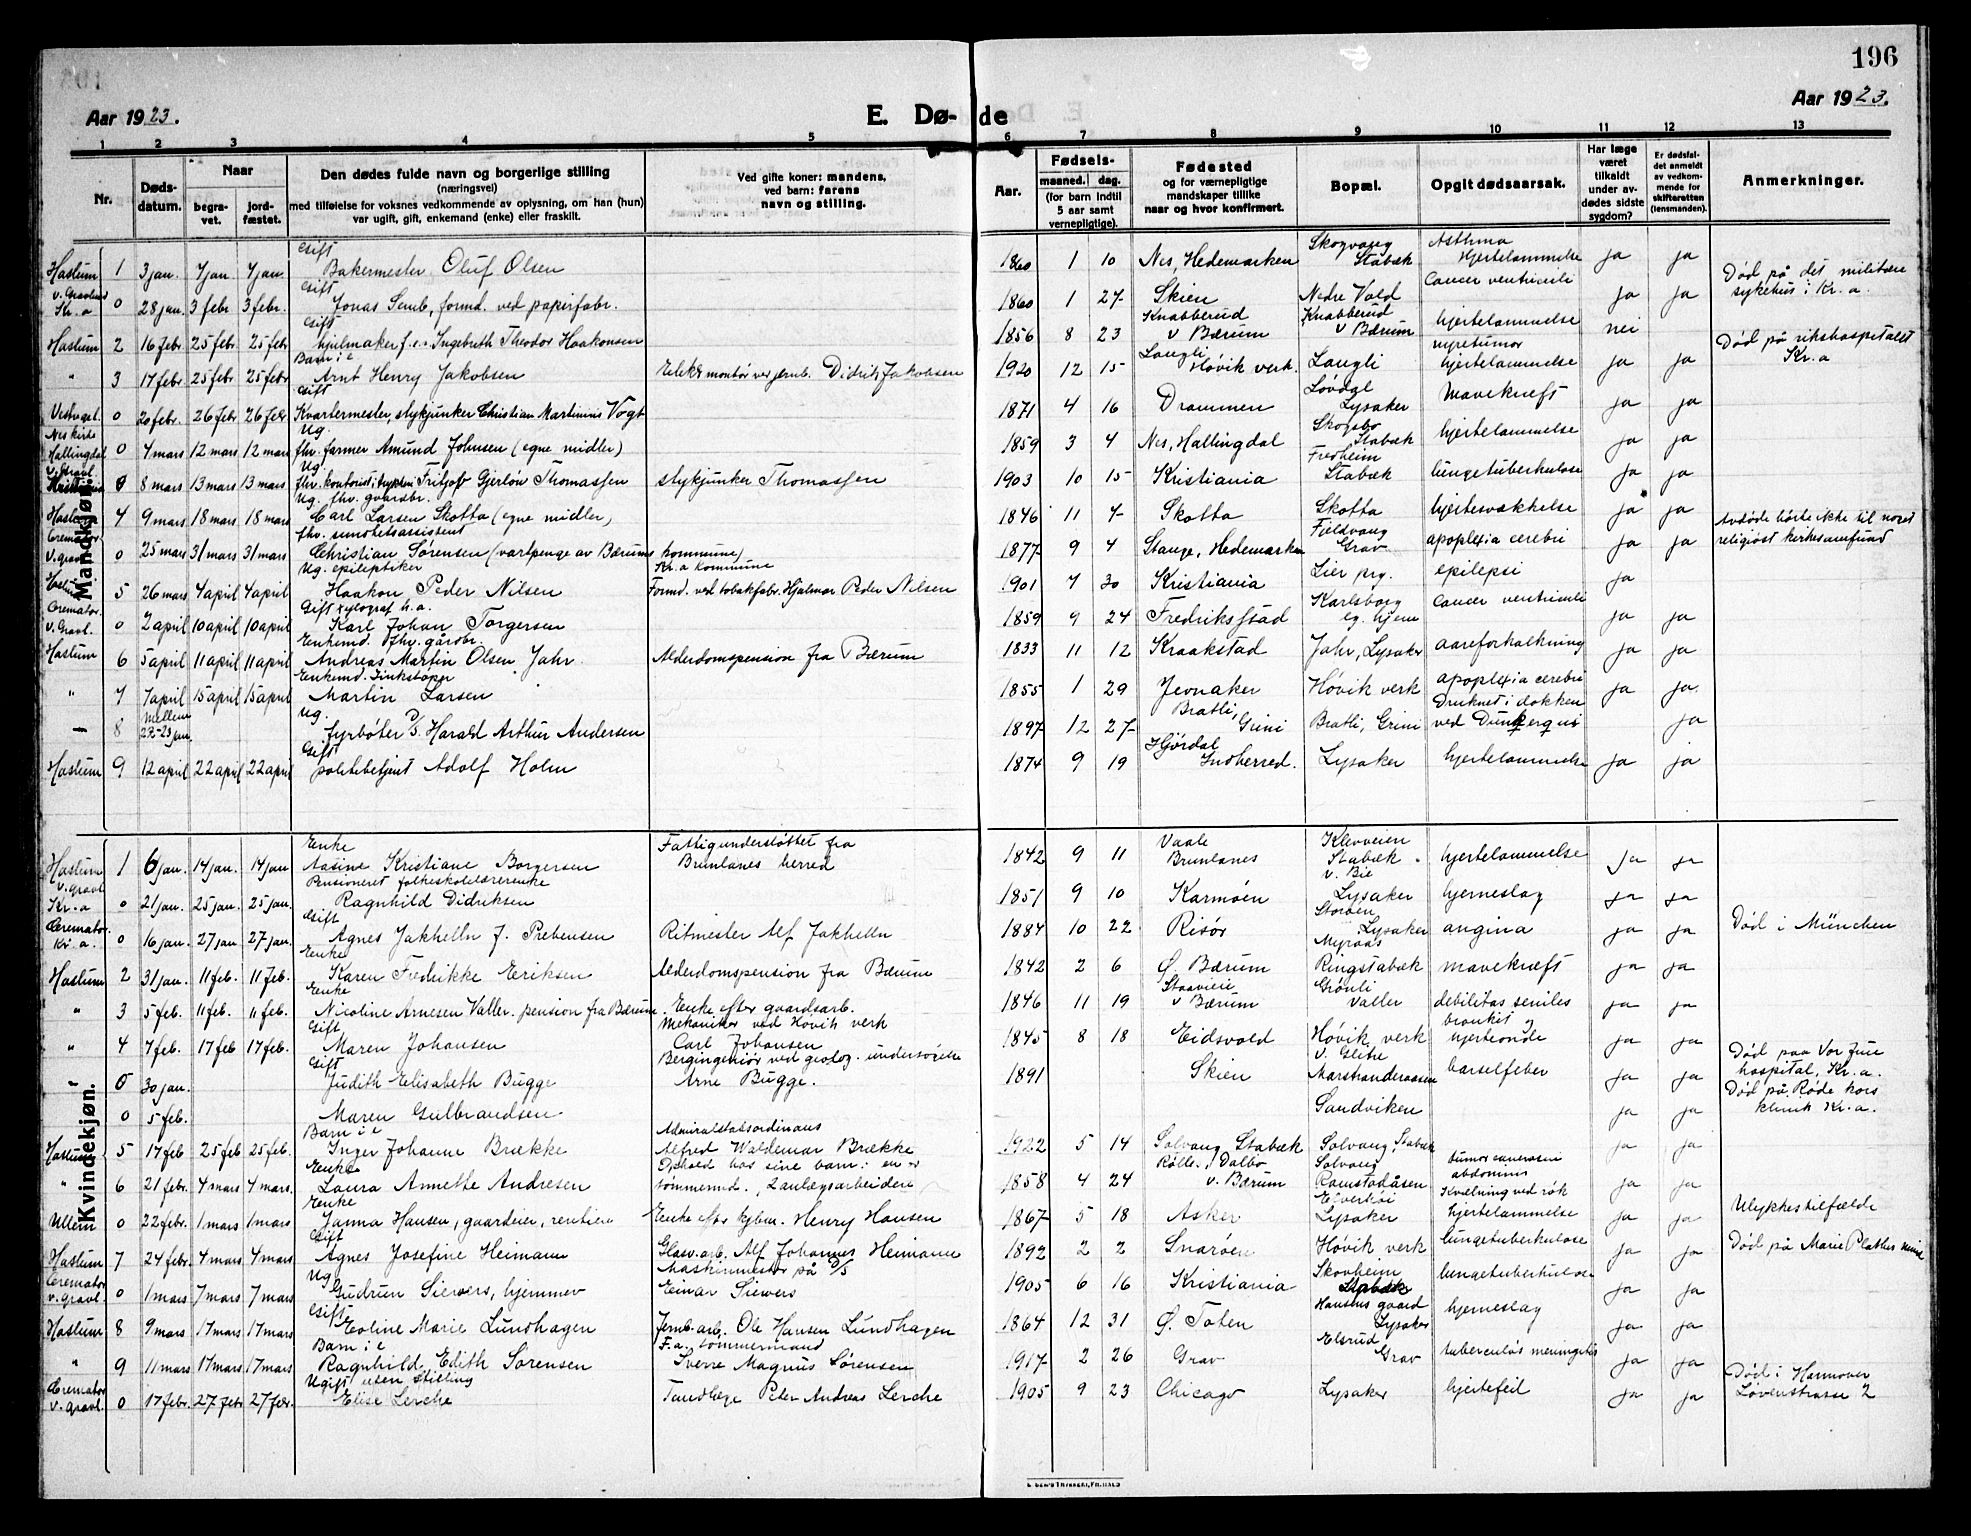 196
Aar 1923.
E. Dø-de
Aar 1923.
1 2 3 4 5 6 7 8 9 10 11 12 13
Nr.
Døds-datum.
Naar
begra-vet.
jord-fæstet.
Den dødes fulde navn og borgerlige stilling
(næringsvei)
med tilføielse for voksnes vedkommende av oplysning, om han (hun)
var ugift, gift, enkemand (enke) eller fraskilt.
Ved gifte koner: mandens,
ved barn: farens
navn og stilling.
Aar.
Fødsels-
maaned. dag.
(for barn indtil
5 aar samt
vernepligtige).
Fødested
og for værnepligtige
mandskaper tillike
naar og hvor konfirmert.
Bopæl.
Opgit dødsaarsak.
Har læge
været
tilkaldt
under av-
dødes sidste
sygdom?
Er dødsfal-
det anmeldt
av vedkom-
mende for
skifteretten
(lensmanden).
Anmerkninger.
Mandkjøn.
Haslum 1 3 jan. 7 jan 7 jan. Gift Bakermester Oluf Olsen 1860 1 10 Nes, Hedemarken Skogvang Stabæk Asthma Hjertelammelse ja ja
v. Gravlund Kr.a 0 28 jan. 3 febr. 3 febr. Gift Jonas Semb, formd. ved papirfabr. 1860 1 27 Skien Nedre Vold Cancer ventriculi ja ja Død på det militære sykehus i Kr.a.
Haslum 2 16 febr. 25 febr. 25 febr. Gift hjulmaker f.v. Ingebreth Theodor Haakonsen 1856 8 23 Knabberud v Bærum Knabberud v Bærum hjertelammelse nei
" 3 17 febr. 25 febr. 25 febr. Barn i e Arnt Henry Jakobsen Elektr montør ver jernb. Didrik Jakobsen 1920 12 15 Laugli Høvik verk. Laugli nyretumor hjertelammelse ja ja Død på rikshospitalet Kr.a
Vestre gl. 0 20 febr. 26 febr 26 febr Gift Kvartermester, stykjunker Christian Martinius Vogt 1871 4 16 Drammen Løvdal Lysaker Mavekræft ja ja
Nes kirke Hallingdal 0 4 mars 12 mars 12 mars Ug. fhv. farmer Amund Johnsen (egne midler) 1859 3 4 Nes, Hallingdal Skogsbo Stabæk hjertelammelse ja ja
v. Gravl. Kristiania 0 8 mars 13 mars 13 mars Ug fhv. kontorist Fritjof Gjerløw Thomassen stykjunker Thomassen 1903 10 15 Kristiania Fredheim Stabæk lungetuberkulose ja ja
Haslum 4 9 mars 18 mars 18 mars Ug. fhv. gvardbr. Carl Larsen Skotta (egne midler) 1846 11 7 Skotta Skotta hjertesvækkelse ja ja
Cremator v. grav 0 25 mars 31 mars 31 mars fhv. sundhetsassistent Christian Sørensen (vartpenge av Bærums kommune) 1877 9 4 Stange, Hedemarken Fjeldvang Grav apoplexia cerebri ja ja Avdøde hørte ikke til noget religiøst kirkesamfund
Haslum 5 26 mars 4 april 4 april Ug. epileptiker Haakon Peder Nilsen Kr.a kommune Formd. ved tobakfabr. Hjalmar Peder Nilsen 1901 7 30 Kristiania Lier prg. epilepsi ja
Cremator. v. Gravl. 0 2 april 10 april 10 april Gift xylograf h.a. Karl Johan Torgersen 1859 9 24 Fredriksstad Karlsborg eg. hjem Cancer ventriculi ja ja
Haslum 6 5 april 11 april 11 april Enkemd. fhv. gårdbr. Andreas Martin Olsen Jahr. Alderdomspension fra Bærum 1833 11 12 Kraakstad Jahr, Lysaker aareforkalkning ja ja
" 7 7 april 15 april 15 april Enkemd. Zinkstøper Martin Larsen 1855 1 29 Jevnaker Høvik verk apoplexia cerebri ja ja.
— 8 Mellem 22-23 jan. Ug. fyrbøter D/S Harald Arthur Andersen 1897 12 27 Bratli, Grini Bratli, Grini Druknet i dokken ved Dunkerque ja
Haslum 9 12 april 22 april 22 april Gift politibetjent Adolf Holm 1874 9 19 Indherred. Lysaker hjertelammelse ja ja
Kvindekjøn.
Haslum 1 6 jan. 14 jan. 14 jan Enke Aasine Kristiane Borgersen Fattigunderstøttet fra Brunlanes herred 1842 9 11 Vaale Brunlanes Klevveien Stabæk hjertelammelse ja ja
v. gravl Kr.a 0 21 jan. 25 jan. 25 jan. Pensioneret folkeskolelærerinke Ragnhild Didriksen 1851 9 10 Karmøen v. Bie Lysaker hjerneslag ja ja
Cremator. Kr.a. 0 16 jan. 27 jan. 27 jan. Gift Agnes Jakhelln f. Prebensen Ritmester Alf Jakhelln 1884 10 22 Risør Storøen Lysaker angina ja ja Død i München
Haslum 2 31 jan. 11 feb. 11 feb. Enke Karen Fredrikke Eriksen Alderdomspension fra Bærum 1842 2 6 Ø. Bærum Myraas Ringstabæk mavekræft ja ja
" 3 5 feb. 11 feb. 11 feb. Enke Nicoline Arnesen Valler. pension fra Bærum. Enke efter gaardsarb. 1846 11 19 v Bærum Grønli Valler debilitas seniles ja ja
" 4 7 feb. 17 feb 17 feb. Gift Maren Johansen Mekaniker ved Høvik verk Carl Johansen 1845 8 18 Eidsvold Høvik verk bronkit og hjerteonde ja ja
" 0 30 jan. Gift Judith Elisabeth Bugge Bergingeniør ved geolog. undersøgelse Arne Bugge. 1891 Skien v. Glitre Marstranderaasen barselfeber ja ja Død paa Vor Frue hospital, Kr.a.
0 5 feb. Maren Gulbrandsen Sandviken ja ja Død på Røde kors klinik Kr.a.
Haslum 5 17 feb 25 feb 25 feb. Barn i e Inger Johanne Brække Admiralstabsordinans Alfred Waldemar Brække 1922 5 14 Solvang Stabæk Solvang, Stabæk ja ja
" 6 21 febr. 4 mars 4 mars. Enke Laura Annette Andresen Ophold hos sine barn: en er tømmermd., 2 anlægsarbeidere 1858 4 24 Dalbo v. Bærum Solvang Ramstadåsen tumor abdominis ja ja
Ullern 0 22 febr. 1 mars 1 mars Enke Janna Hansen, gaardeier, rentiere Enke efter kjbm. Henry Hansen 1867 5 18 Asker Lysaker Kvælning ved røk hjertelammelse ja ja Ulykkestilfælde
Haslum 7 24 febr. 4 mars 4 mars. Gift Agnes Josefine Heimann Glasv. arb. Alf Johannes Heimann 1892 2 2 Snarøen Høvik verk lungetuberkulose ja ja Død på Marie Plathes minde
Cremator v. gravl. 0 1 mars 7 mars 7 mars Ug Gudrun Siewers, hjemmev Maskinmester på D/S Einar Siewers 1905 6 16 Kristiania Skovheim Stabæk lungetuberkulose ja ja
Haslum 8 9 mars 17 mars 17 mars Gift Eoline Marie Lundhagen Jernb. arb. Ole Hansen Lundhagen 1864 12 31 Ø. Toten gaard Lysaker hjerneslag ja ja
" 9 11 mars 17 mars 17 mars Barn i e Ragnhild Edith Sørensen F.a. tømmermand Sverre Magnus Sørensen 1917 2 26 Grav Elsrud Grav tuberculøs meningitis ja ja
Cremator v. gravl. 0 17 febr. 27 febr 27 febr. Ugift uten stilling Elise Lerche Tandlæge Peter Andreas Lerche 1905 9 23 Chicago Lysaker hjertefeil ja ja Død i Hannover Løvenstrasse 2